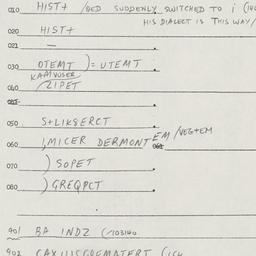 010 HIST+ /GED SUDDENLY SWITCHED TO i (
HIS DIALECT IS THIS WAY/
020 HIST+
021 —
030 OTEMT ) = UTEMT
KAMVUSER
040 / ZIPET
050 S+LIKSERCT
060 IMICER DERMONT EM /VEG+EM
070 ) SOPET
080 ) GREQPCT
401 BA INDZ (/103140
402